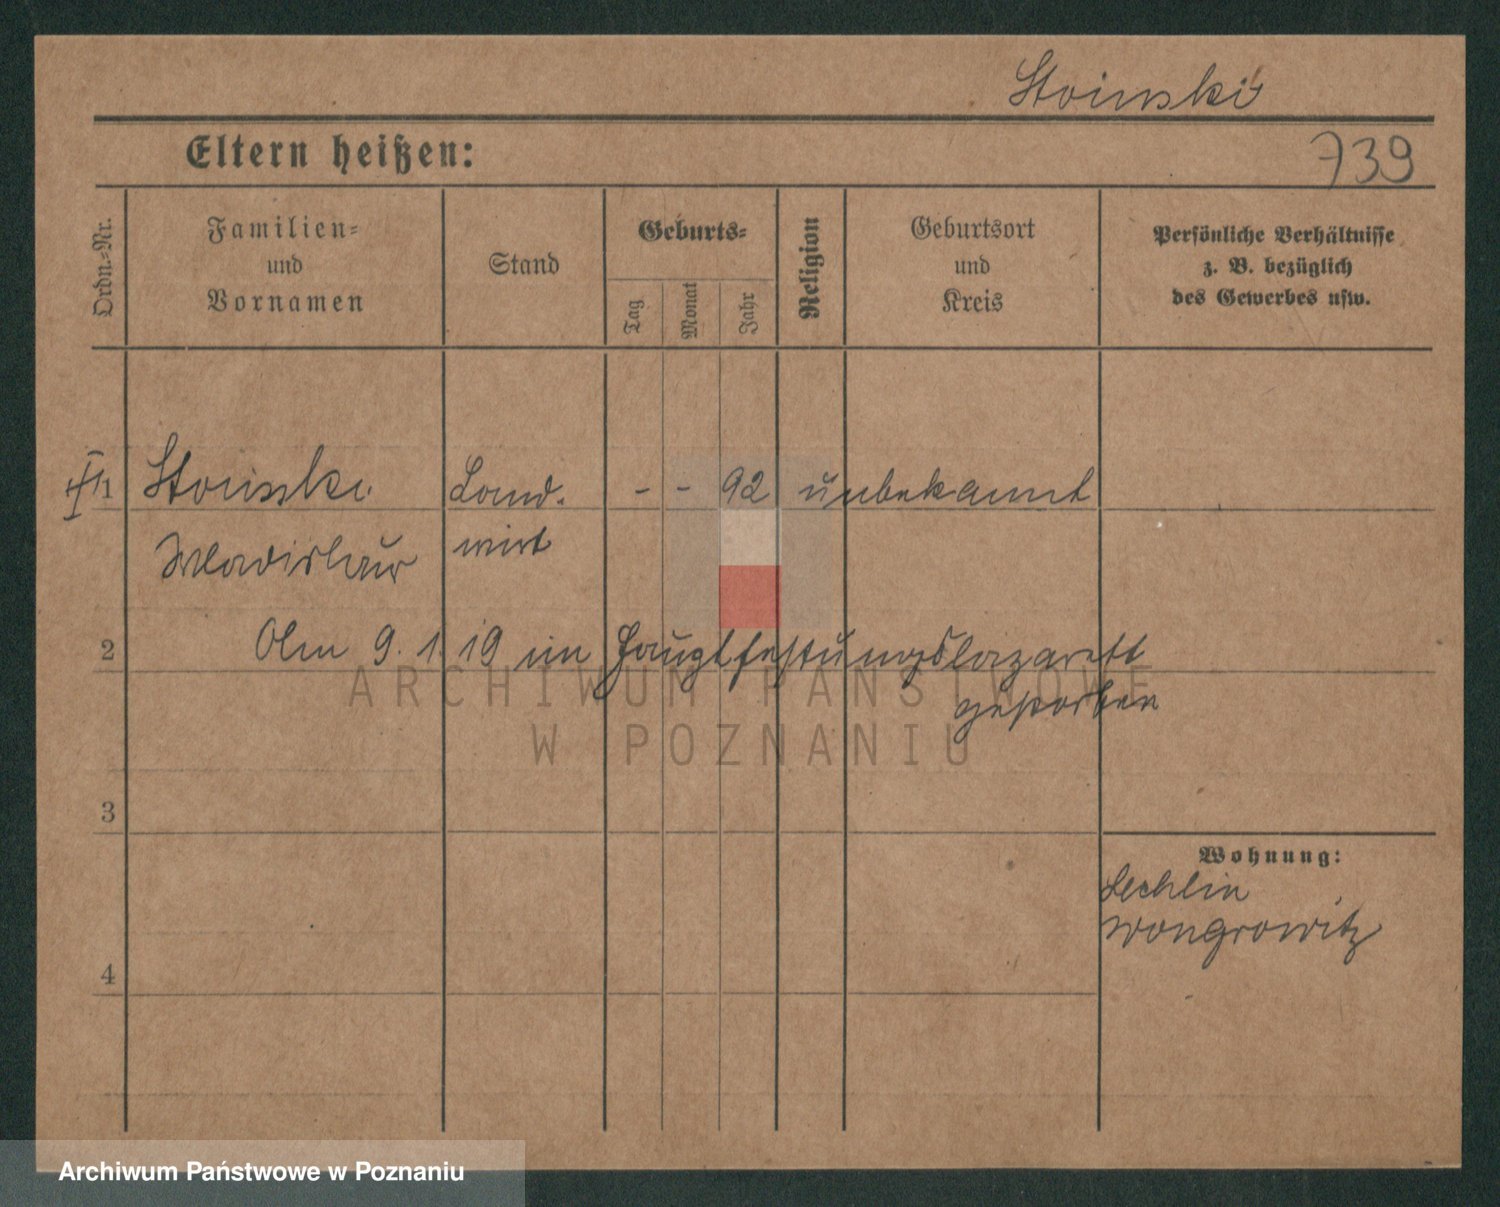 Stoinski
Eltern heißen:
739
Ordn.-Nr.
Familien-
und
Vornamen
Stand
Geburts-
Tag
Monat
Jahr
Religion
Geburtsort
und
Kreis
Persönliche Verhältnisse
z. B. bezüglich
des Gewerbes usw.
1 Stoinski Land- - - 92 unbekannt
Wladislaus wirt
2 Am 9. 1. 19 im Hauptfestungslazarett
gestorben
ARCHIWUM PAŃSTWOWE
W POZNANIU
3
Wohnung:
Lechlin
Wongrowitz
4
Archiwum Państwowe w Poznaniu